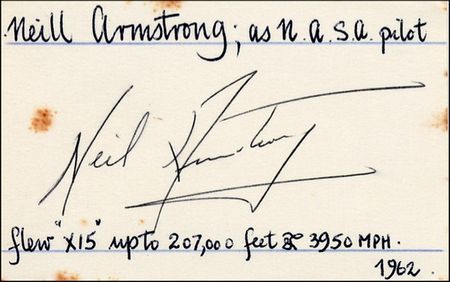 Neill Armstrong; as N.A.S.A. pilot
Neil Armstrong
flew "X15" up to 207,000 feet & 3950 MPH.
1962.